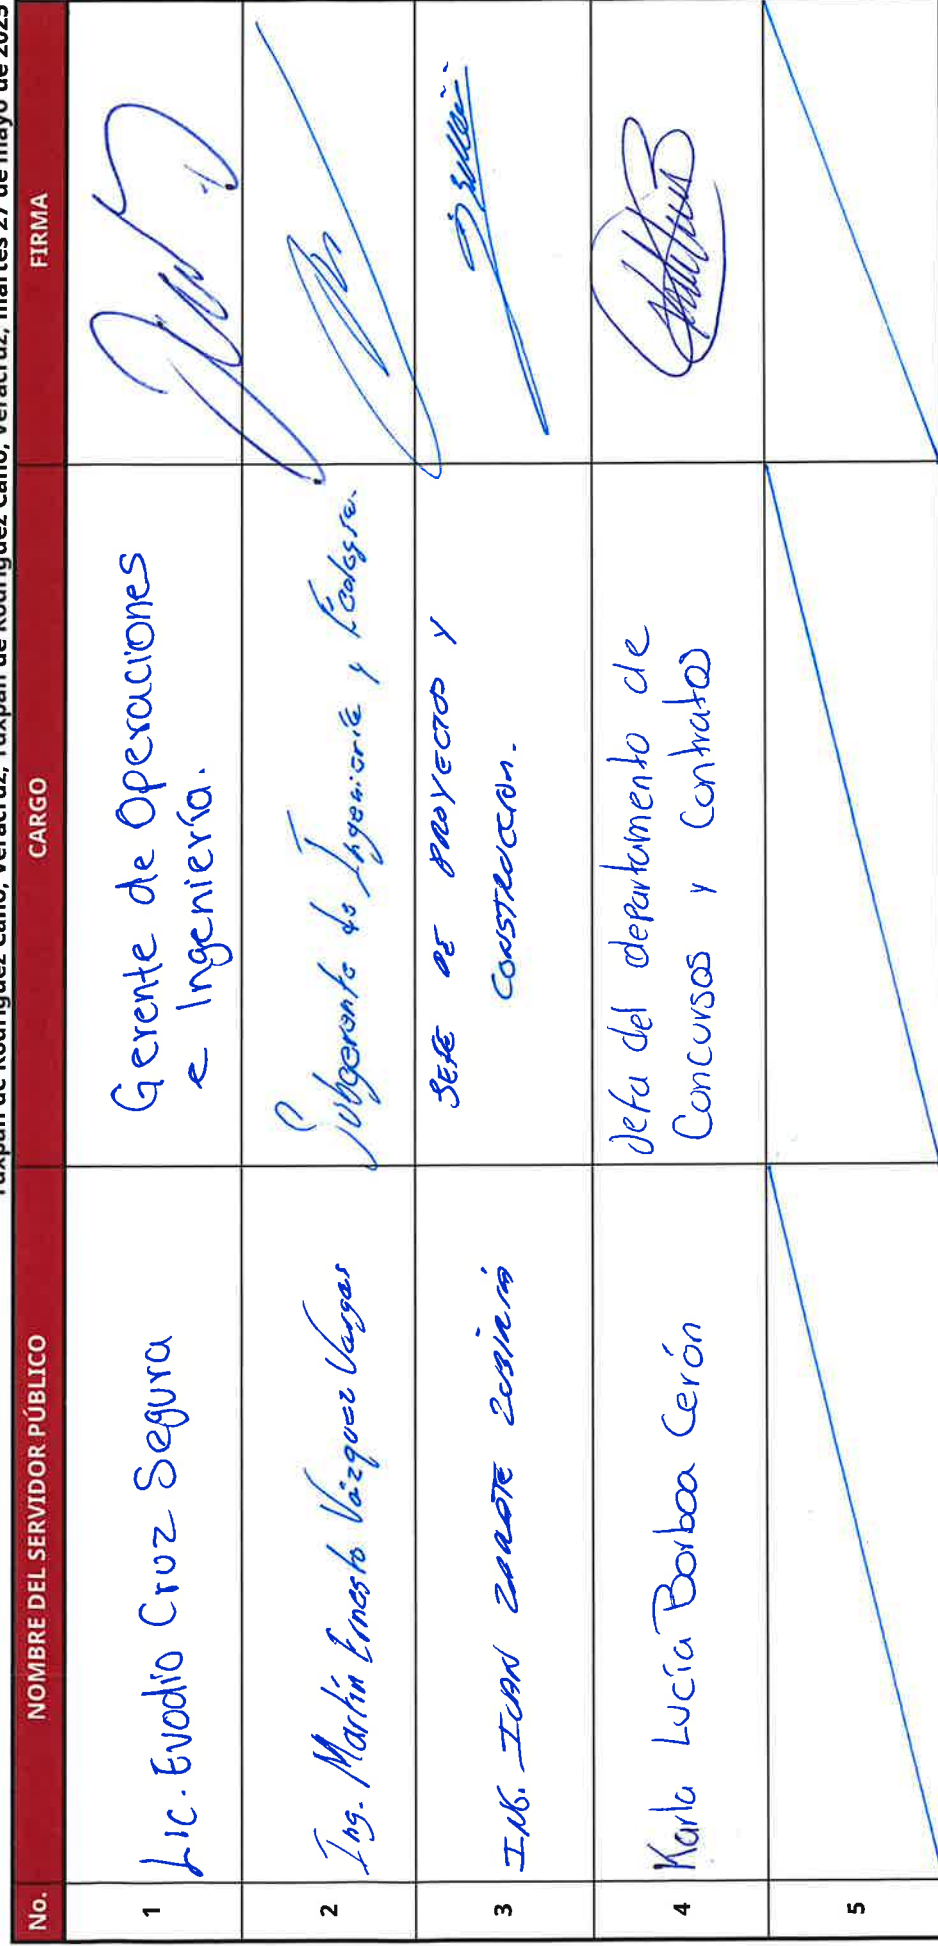 Tuxpan de Rodríguez Cano, Veracruz, Tuxpan de Rodríguez Cano, Veracruz, martes 27 de mayo de 2025
No. NOMBRE DEL SERVIDOR PÚBLICO CARGO FIRMA
1 Lic. Evodio Cruz Segura Gerente de Operaciones
e Ingeniería.
2 Ing. Martín Ernesto Vázquez Vargas Subgerente de Ingeniería y Ecología.
3 ING. IVAN ZARATE JEFE DE PROYECTOS Y
CONSTRUCCION.
4 Karla Lucía Borboa Cerón Jefa del departamento de
Concursos y Contratos
5